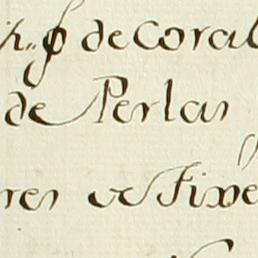 de coral
de Perlas
res de Fixe